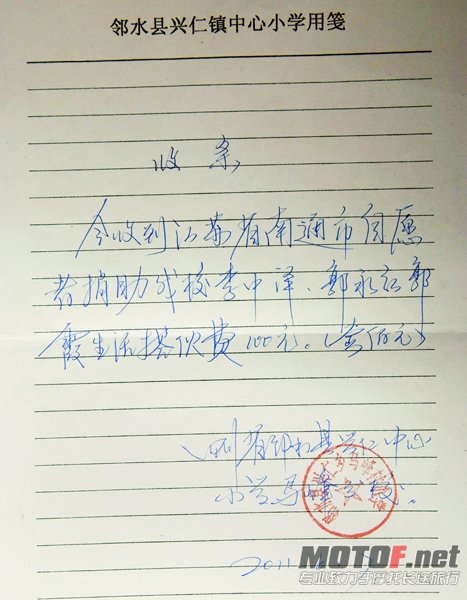 邻水县兴仁镇中心小学用笺
收条
今收到江苏省南通市自愿
者捐助我校李中泽、郭永红郭
霞生活搭伙费100元。(壹佰元)
四川省邻水县兴仁中心
小学马
2011
MOTOF.net
专业软刀车摩托长途旅行